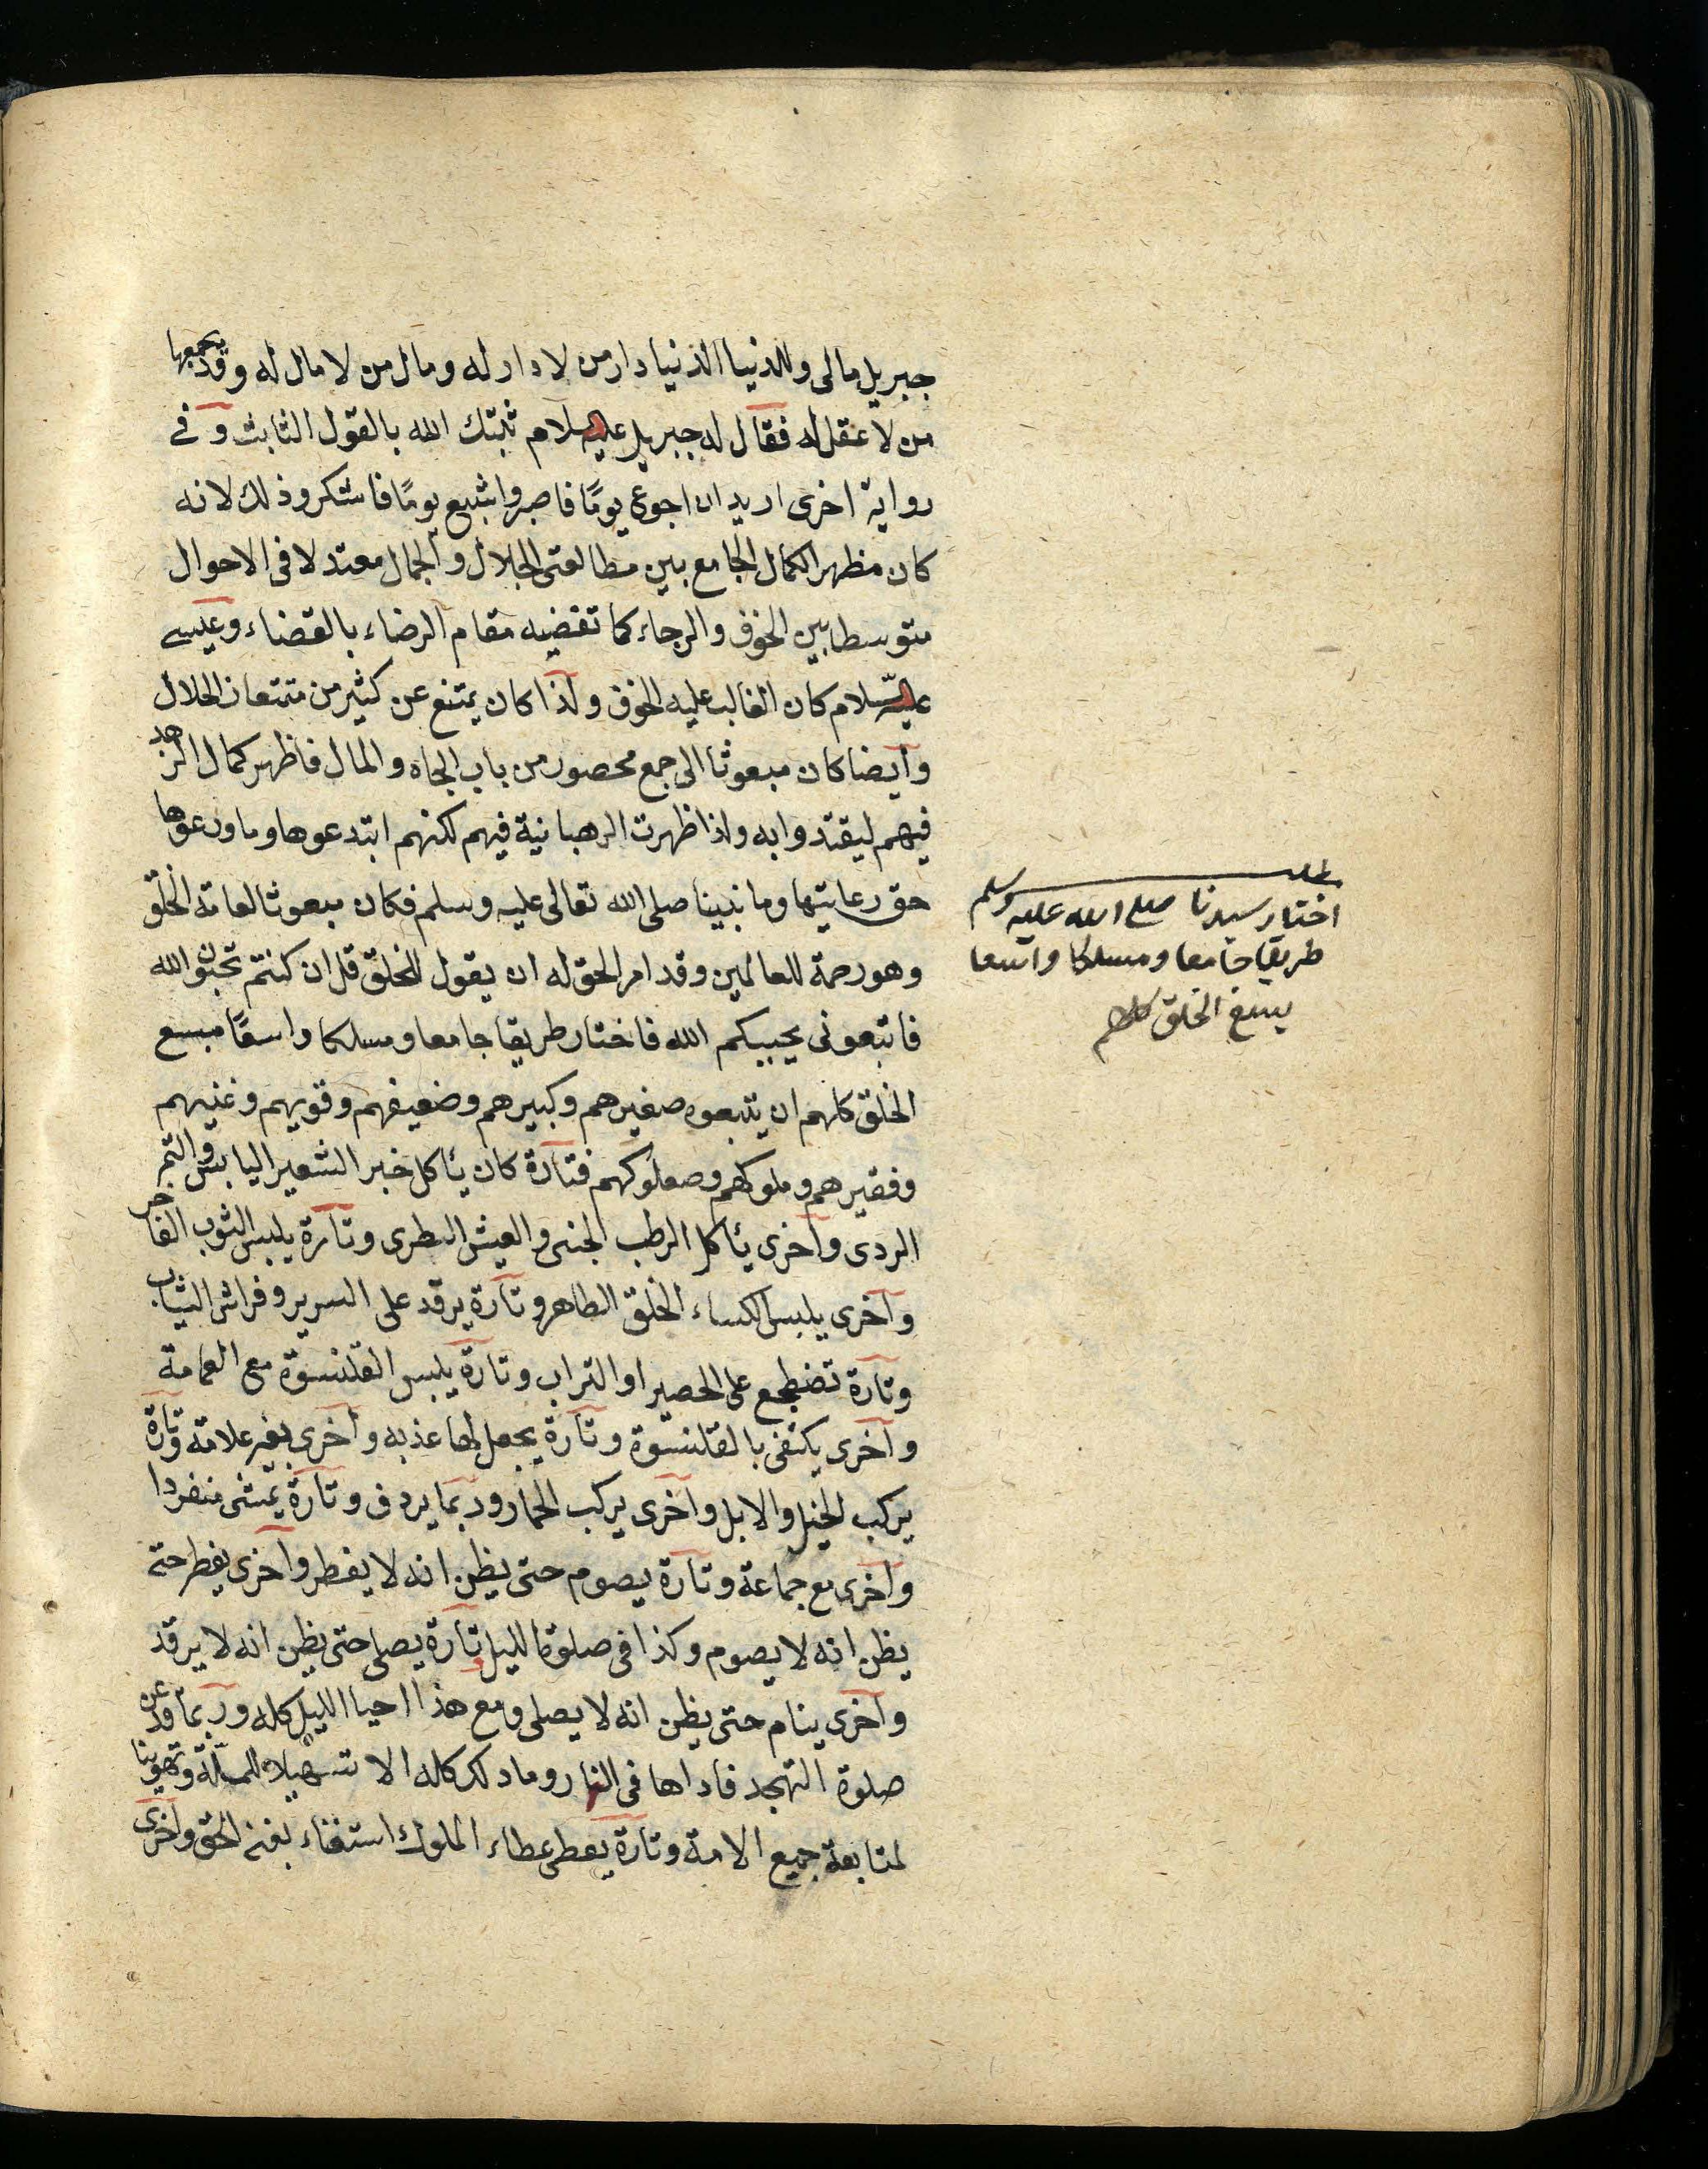 جبريل مالى وللدنيا الدنيا دار من لا دار له ومال من لا مال له وقد يجمعها
من لا عقل له فقال له جبريل عليه السلام ثبتك الله بالقول الثابت وفى
رواية اخرى اريد ان اجوع يومًا فاصبر واشبع يومًا فاشكر وذلك لانه
كان مظهر الكمال الجامع بين مطالعتى الجلال والجمال معتدلا فى الاحوال
متوسطا بين الخوف والرجاء كما تقضيه مقام الرضاء بالقضاء وعيسى
عليه السلام كان الغالب عليه الخوف ولذا كان يمتنع عن كثير من متمتعات الحلال
وايضا كان مبعوثا الى جمع محصور من باب الجاه والمال فاظهر كمال الزهد
فيهم ليقتدوا به ولذا ظهرت الرهبانية فيهم لكنهم ابتدعوها وما ورعوها
حق رعايتها وما نبينا صلى الله تعالى عليه وسلم فكان مبعوثا لعامة الخلق
وهو رحمة للعالمين وقد امر الحق له ان يقول للخلق قل ان كنتم تحبون الله
فاتبعونى يحببكم الله فاختار طريقا جامعا ومسلكا واسعًا مبسع
الخلق كلهم ان يتبعوه صغيرهم وكبيرهم وضعيفهم وقويهم وغنيهم
وفقيرهم وملوكهم وصعلوكهم فتارة كان يأكل خبر الشعير اليابس والتمر
الردى واخرى يأكل الرطب الجنى والعيش الطرى وتارة يلبس الثوب الفاخر
واخرى يلبس الكساء الخلق الطاهر وتارة يرقد على السرير وفراش الثياب
وتارة تضطجع على الحصير او التراب وتارة يلبس القلنسوة مع العمامة
واخرى يكتفى بالقلنسوة وتارة يجعل لها عذبه واخرى بغير علامة وتارة
يركب الخيل والابل واخرى يركب الحمار وربما يردف وتارة يمشى منفردا
واخرى مع جماعة وتارة يصوم حتى يظن انه لا يفطر واخرى يفطر حتى
يظن انه لا يصوم وكذا فى صلوة الليل تارة يصلى حتى يظن انه لا يرقد
واخرى ينام حتى يظن انه لا يصلى ومع هذا احيا الليل كله وربما قد عن
صلوة التهجد فاداها فى النهار وما ذلك كله الا تسهيلا للملة وتهوينا
لمتابعة جميع الامة وتارة يعطى عطاء الملوك استغناء بغنى الحق واخرى
مطلب
اختيار سيدنا صلى الله عليه وسلم
طريقا جامعا ومسلكا واسعا
يسع الخلق كلهم